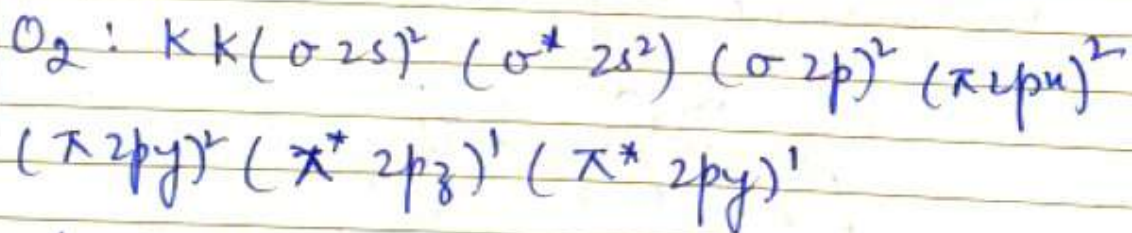 O₂ : KK(σ 2s)² (σ* 2s²) (σ 2p)² (π2px)²
(π 2py)² (π* 2pz)¹ (π* 2py)¹